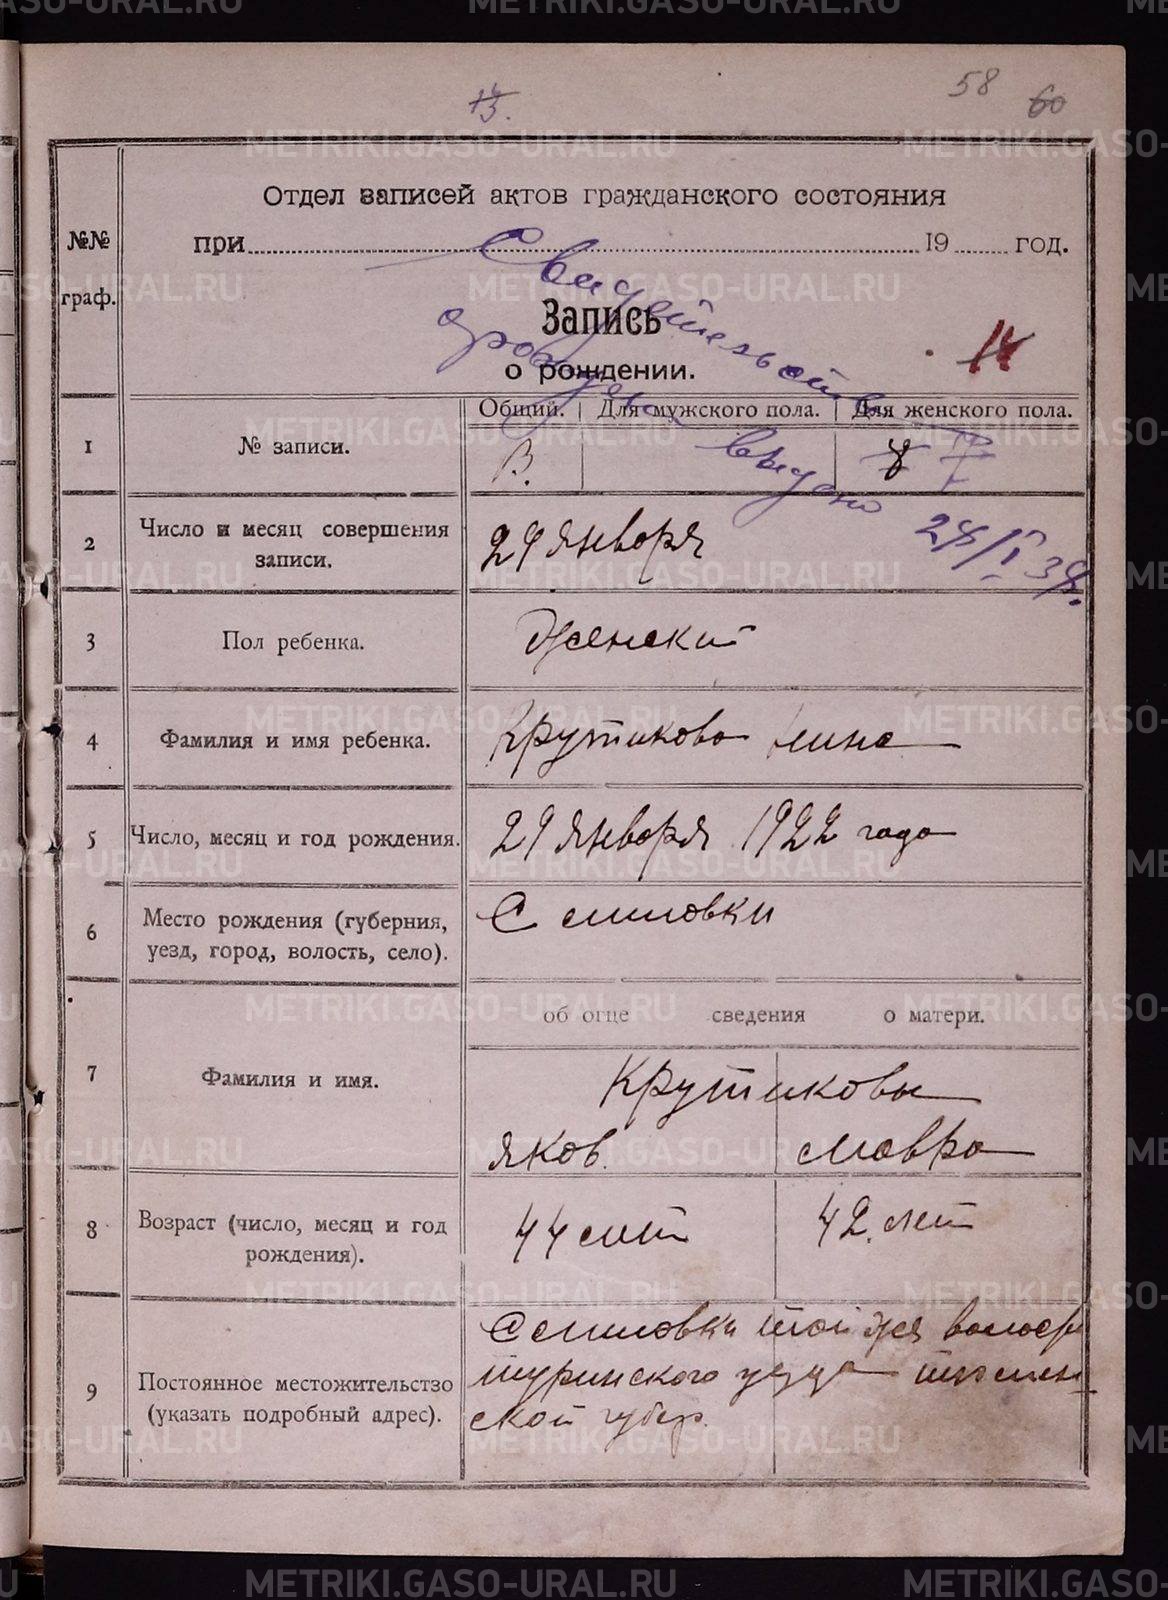 58 60
13.
Отдел записей актов гражданского состояния
№№ граф.
при 19 год.
Свидетельство
Запись
о рождении.
выдано
24/I 39г.
14
Общий. Для мужского пола. Для женского пола.
1 № записи. 13. 8 7
2 Число и месяц совершения записи. 29 января
3 Пол ребенка. Женский
4 Фамилия и имя ребенка. Крутикова Нина
5 Число, месяц и год рождения. 29 января 1922 года
6 Место рождения (губерния, уезд, город, волость, село). С
об отце сведения о матери.
7 Фамилия и имя. Крутиковы
Яков. Мавра
8 Возраст (число, месяц и год рождения). 44 лет 42 лет
9 Постоянное местожительство (указать подробный адрес). той же
Туринского уезда Тюмен-
ской губер.
METRIKI.GASO-URAL.RU